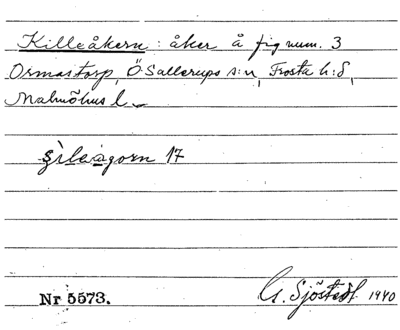 Killeåkern: åker å fig num. 3
Ormastorp, Ö Sallerups s:n, Frosta h:d,
Malmöhus l.
17
Nr 5573. G. Sjöstedt 1940